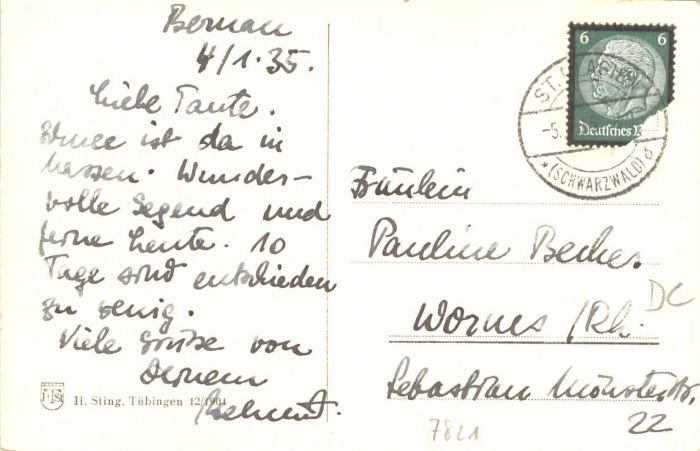 Bernau
4/1.35.
Liebe Tante.
Schnee ist da in
Massen. Wunder-
volle Gegend und
ferne Leute. 10
Tage sind entschieden
zu wenig.
Viele Grüße von
Deinem
Helmut.
H. Sting, Tübingen 12/1904
6 6
Deutsches R
ST.
-5.
*(SCHWARZWALD)d
Fräulein
Pauline Becker
Worms /Rh.
Sebastian Münsterstr.
22
DC
7821